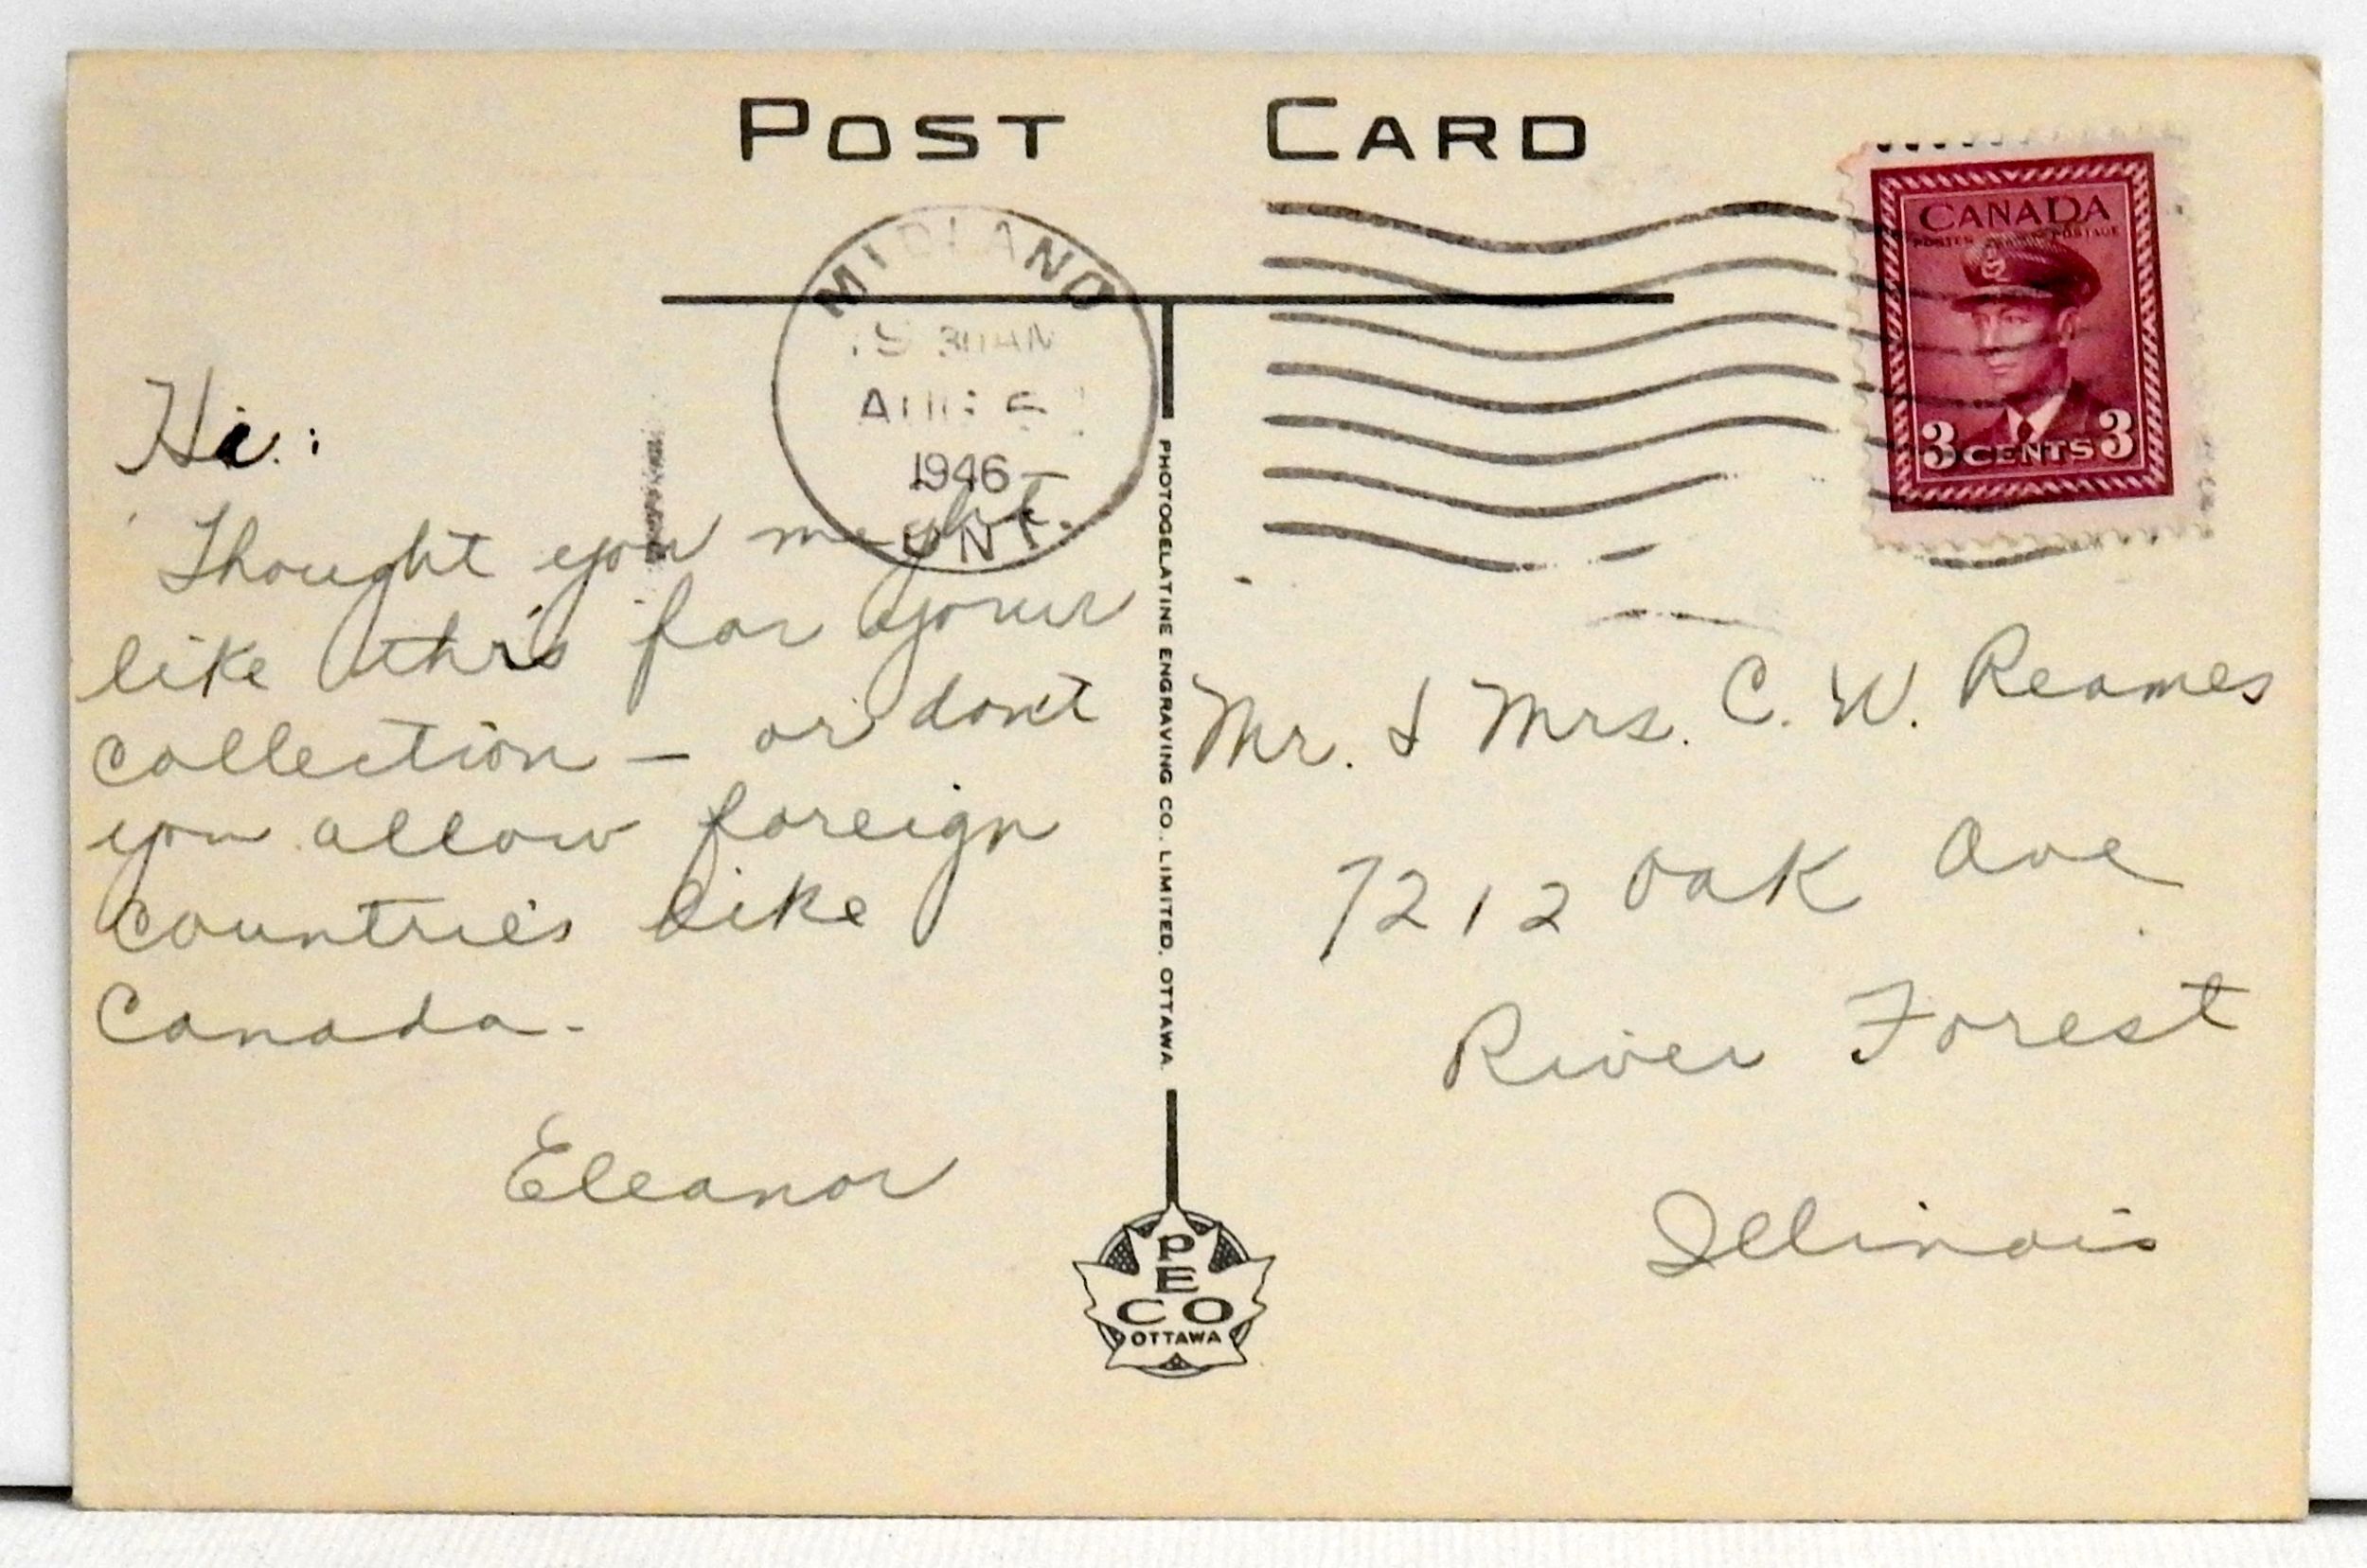 POST CARD
MIDLAND
1946
ONT.
CANADA
POSTES POSTAGE
3 CENTS 3
Hi:
Thought you might
like this for your
collection — or don't
you allow foreign
countries like
Canada.
Eleanor
PHOTOGELATINE ENGRAVING CO., LIMITED, OTTAWA.
Mr. & Mrs. C. W. Reames
7212 Oak Ave
River Forest
Illinois
PECO
OTTAWA